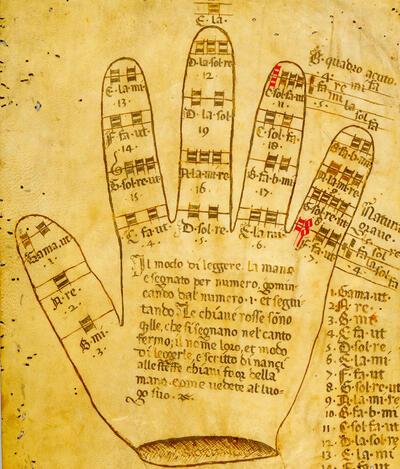 E. la.
D. la sol. re
12
E. la. mi
13
C. sol. fa. ut
11
B. quadro acuto.
4. re mi fa
fa mi la sol
5. fa
F. fa ut
14
D. la. sol.
19
C. sol. fa.
18
B. fa. b. mi
G. sol. re. ut
15
A. la. mi. re
16
B. fa. b. mi
17
A. la. mi. re
9
G. sol. re. ut
8
Natura
grave.
Gama. ut.
1.
C. fa. ut
4.
D. sol. re.
5.
E. la. mi.
6.
F. fa. ut
7.
A. re.
2.
B. mi.
3.
Il modo di leggere la mano
e segnato per numero, comin
cando dal numero. 1. et segui
tando. Le chiave rosse sono
qlle, che si segnano nel canto
fermo, il nome loro, et modo
di leggerle, e scritto dinanci
alle stesse chiavi fuor della
mano, come vedete al luo-
go suo.
1. Gama. ut.
2. A. re.
3. B. mi
4. C. fa ut
5. D. sol. re
6. E. la. mi
7. F. fa ut
8. G. sol. re. ut
9. A. la. mi. re
10. B. fa. b. mi
11. C. sol. fa. ut
12. D. la. sol. re
13. E. la. mi
14. F. fa. ut